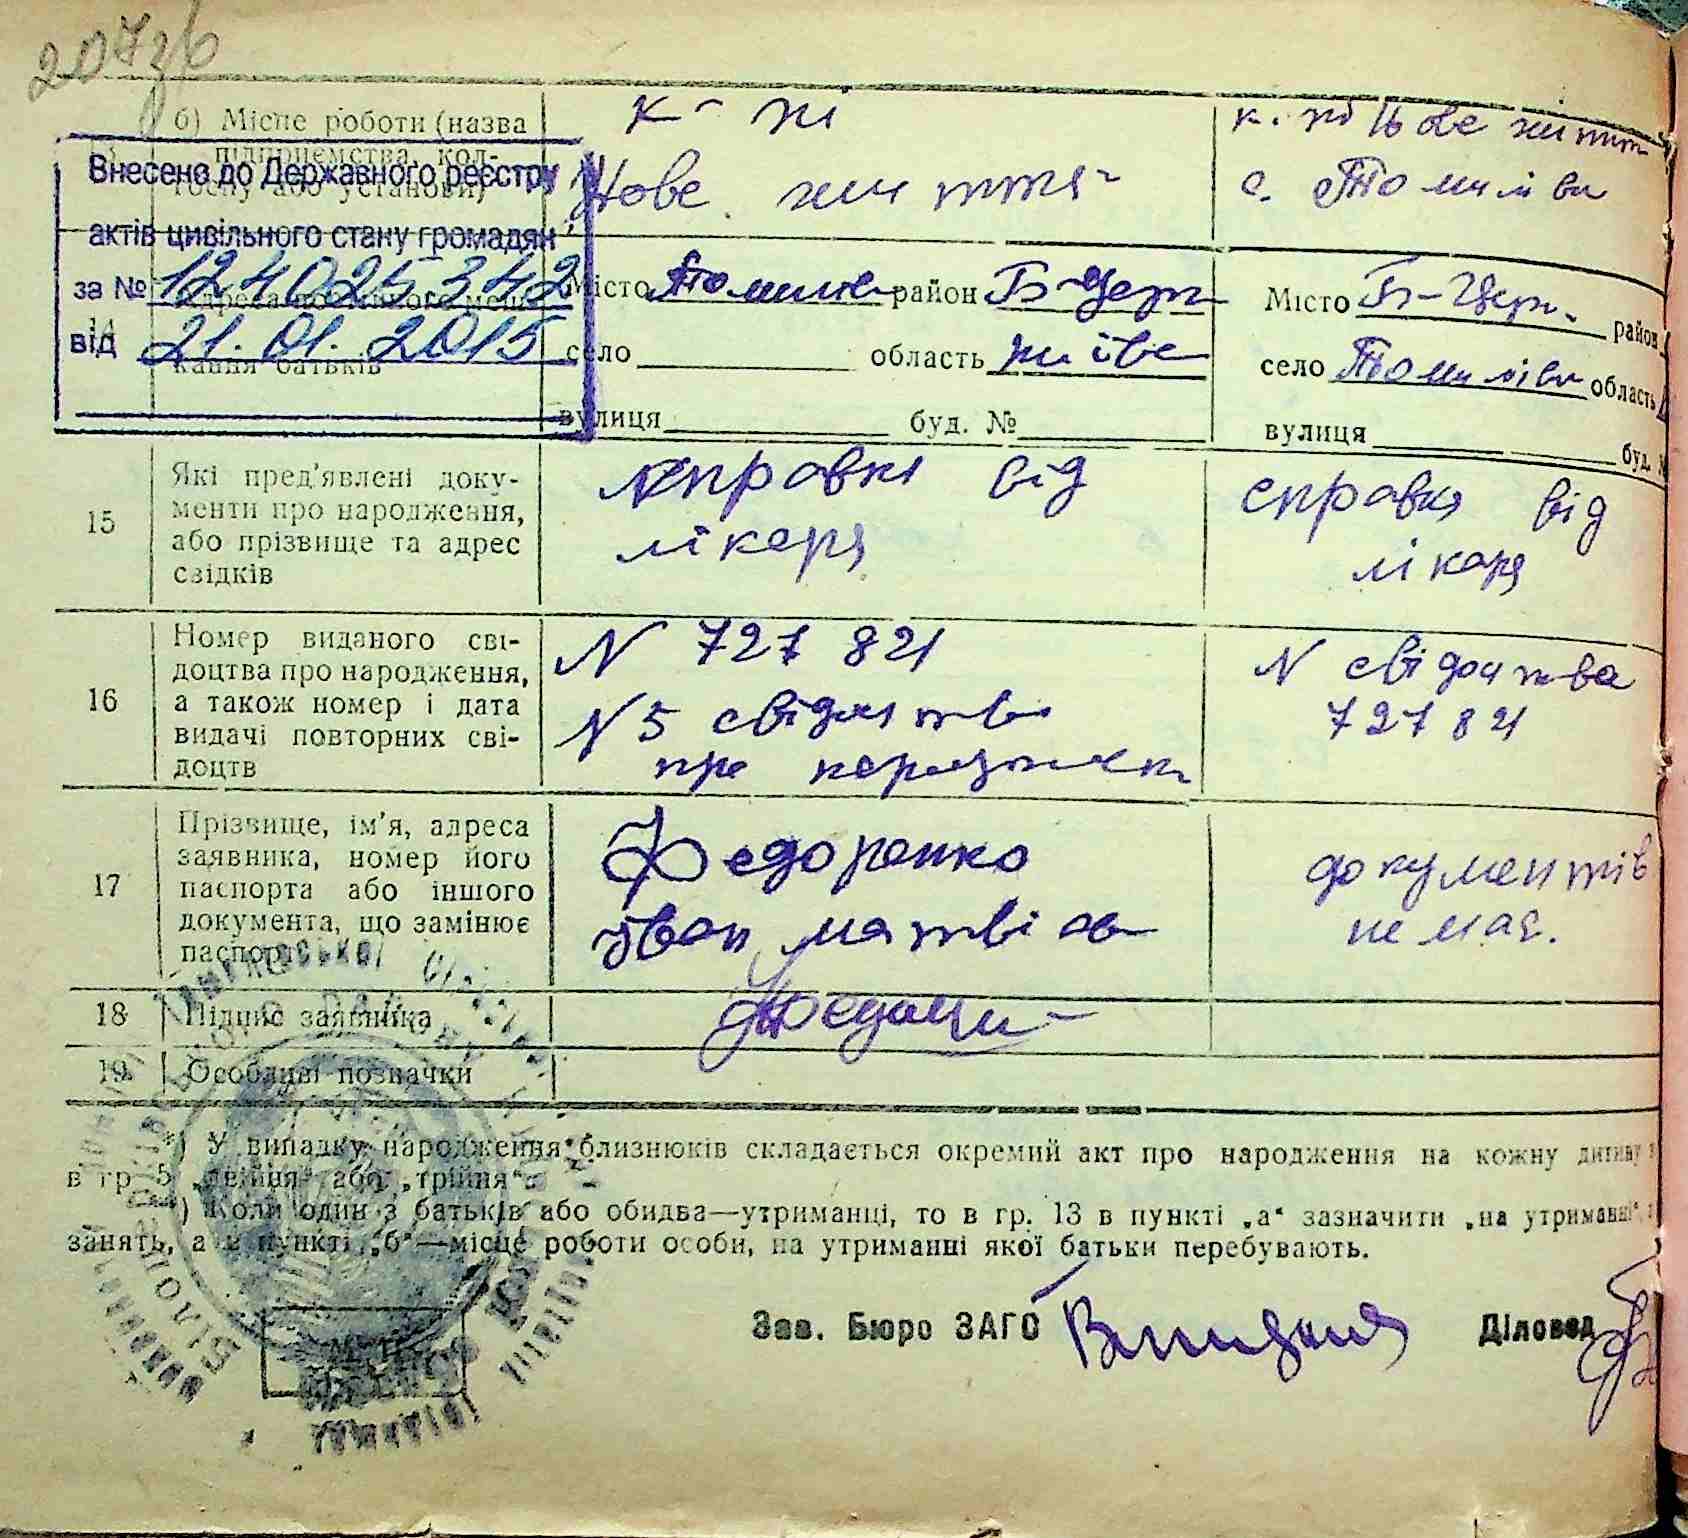 207зб
б) Місце роботи (назва підприємства, кол-
госпу або установи)
к-пі
Нове життя
к-пі Нове життя
с. Томилівка
Внесено до Державного реєстру
актів цивільного стану громадян
за № 124025342
від 21.01.2015
14
кання батьків
Місто Томилів район Б-Церк
село область київс
вулиця буд. №
Місто Б-Церк. район
село Томилівк область
вулиця буд. №
15
Які пред'явлені доку-
менти про народження,
або прізвище та адрес
свідків
справка від
лікаря
справка від
лікаря
16
Номер виданого сві-
доцтва про народження,
а також номер і дата
видачі повторних сві-
доцтв
N 727821
N 5 свідоцтва
про
N свідоцтва
727821
17
Прізвище, ім'я, адреса
заявника, номер його
паспорта або іншого
документа, що замінює
паспорт
Федоренко
Іван Матвіев
документів
немає.
18
Підпис заявника
19
Особливі позначки
*) У випадку народження близнюків складається окремий акт про народження на кожну дитину
в гр. 5 „двійня" або „трійня".
*) Коли один з батьків або обидва—утриманці, то в гр. 13 в пункті „а" зазначити „на утриманні",
занять, а в пункті „б"—місце роботи особи, на утриманні якої батьки перебувають.
Зав. Бюро ЗАГС
Діловод